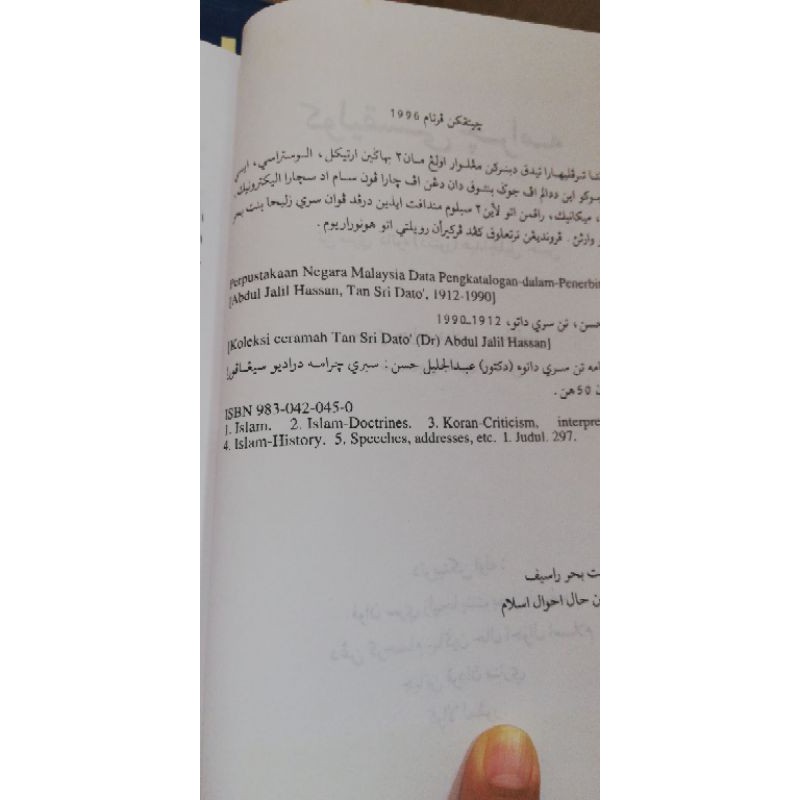 چيتقكن ڤرتام 1996
ترڤليهارا تيدق دبنركن مڠلوار اولڠ مان٢ بهاݢين ارتيكل، الوستراسي، ايسي
بوكو اين ددالم اڤ جوݢ بنتوق دان دڠن اڤ چارا ڤون سام اد سچارا اليكترونيك،
ميكانيك، راقمن اتو لاٴين٢ سبلوم مندافت ايذين درڤد ڤوان سري زليحا بنت بحر
وارثڽ. ڤرونديڠن ترتعلوق كڤد ڤركيراٴن رويلتي اتو هونوراريوم.
Perpustakaan Negara Malaysia Data Pengkatalogan-dalam-Penerbit
[Abdul Jalil Hassan, Tan Sri Dato', 1912-1990]
حسن، تن سري داتو، 1912-1990
[Koleksi ceramah Tan Sri Dato' (Dr) Abdul Jalil Hassan]
تن سري داتوء (دكتور) عبدالجليل حسن : سيري چرامه دراديو سيڠاڤورا
50 هن.
ISBN 983-042-045-0
1. Islam. 2. Islam-Doctrines. 3. Koran-Criticism, interpre
4. Islam-History. 5. Speeches, addresses, etc. 1. Judul. 297.
بحر راسيف
حال احوال اسلام